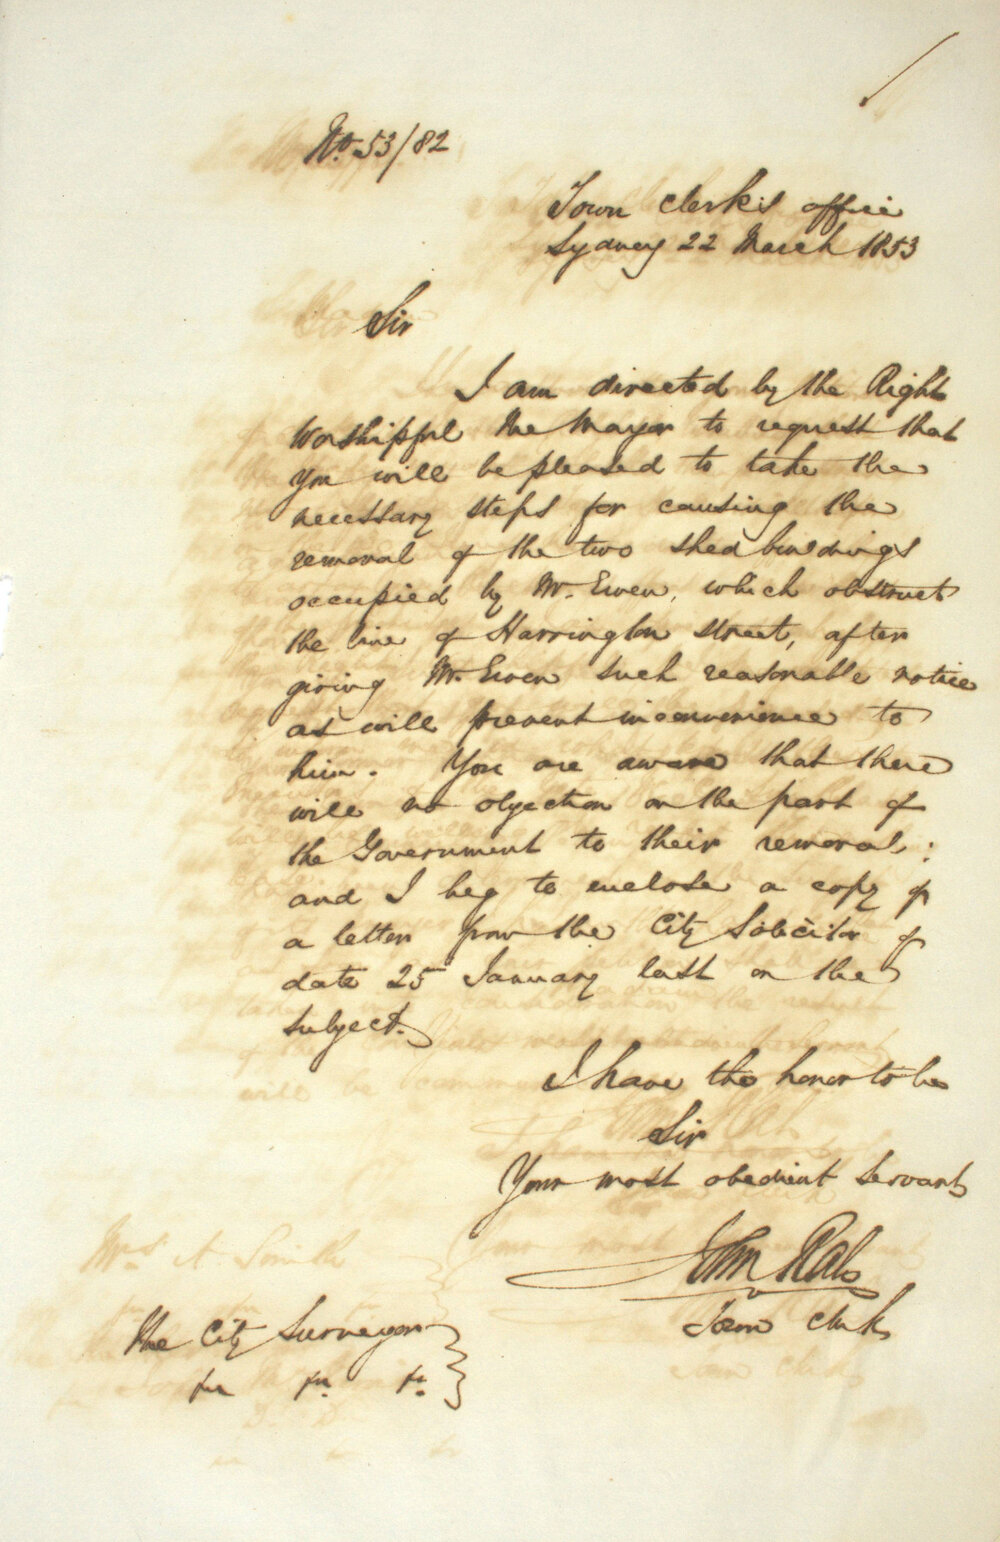 No. 53/82
Town Clerk's office
Sydney 22 March 1853
Sir
I am directed by the Right
Worshipful the Mayor to request that
you will be pleased to take the
necessary steps for causing the
removal of the two shed buildings
occupied by Mr. Ewen, which obstruct
the line of Harrington street, after
giving Mr. Ewen such reasonable notice
as will prevent inconvenience to
him. You are aware that there
will no objection on the part of
the Government to their removal:
and I beg to enclose a copy of
a letter from the City Solicitor of
date 25 January last on the
subject.
I have the honor to be
Sir
Your most obedient Servant
John Rae
Town Clerk
The City Surveyor